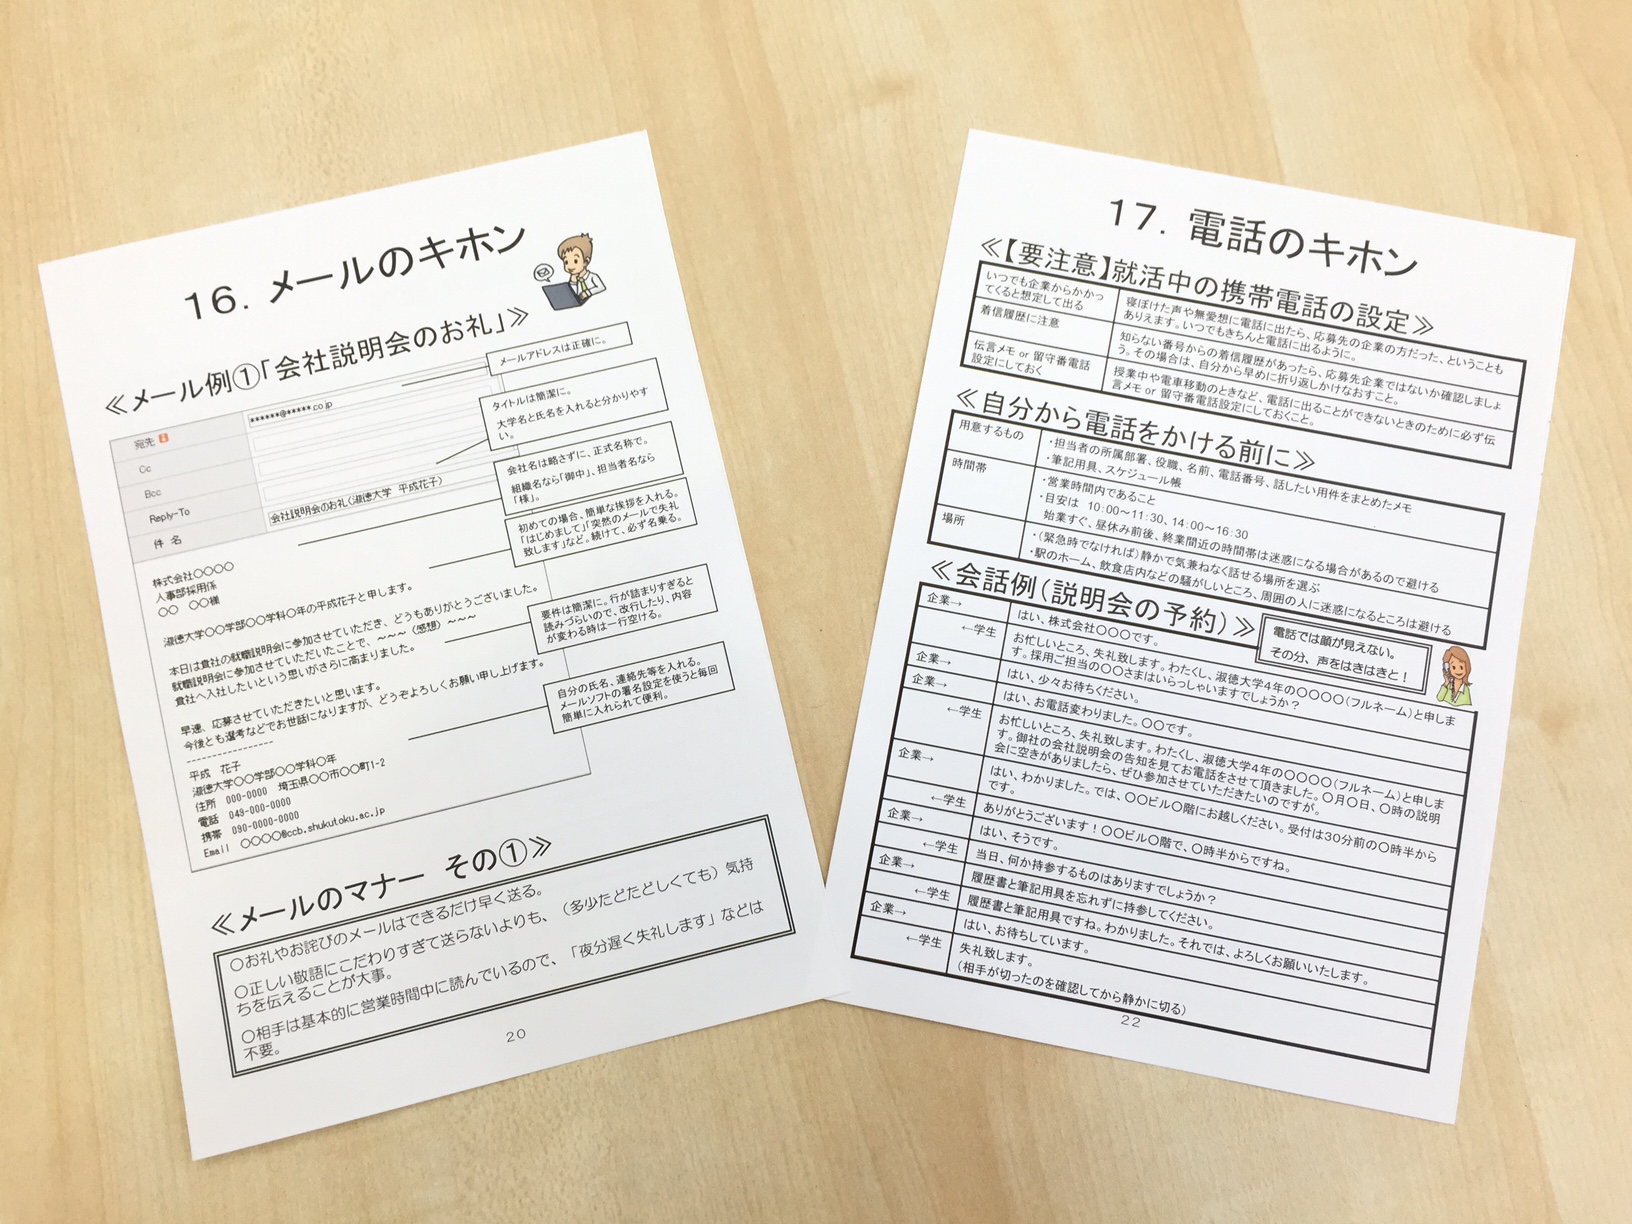 16. メールのキホン
≪メール例①「会社説明会のお礼」≫
宛先
******@*****.co.jp
Cc
Bcc
Reply-To
件 名
会社説明会のお礼(淑徳大学 平成花子)
メールアドレスは正確に。
タイトルは簡潔に。
大学名と氏名を入れると分かりやす
い。
会社名は略さずに、正式名称で。
組織名なら「御中」、担当者名なら
「様」。
初めての場合、簡単な挨拶を入れる。
「はじめまして」「突然のメールで失礼
致します」など。続けて、必ず名乗る。
要件は簡潔に。行が詰まりすぎると
読みづらいので、改行したり、内容
が変わる時は一行空ける。
自分の氏名、連絡先等を入れる。
メールソフトの署名設定を使うと毎回
簡単に入れられて便利。
株式会社〇〇〇〇
人事部採用係
〇〇 〇〇様
淑徳大学〇〇学部〇〇学科〇年の平成花子と申します。
本日は貴社の就職説明会に参加させていただき、どうもありがとうございました。
就職説明会に参加させていただいたことで、～～～（感想）～～～
貴社へ入社したいという思いがさらに高まりました。
早速、応募させていただきたいと思います。
今後とも選考などでお世話になりますが、どうぞよろしくお願い申し上げます。
----------------
平成 花子
淑徳大学〇〇学部〇〇学科〇年
住所 000-0000 埼玉県〇〇市〇〇町1-2
電話 049-000-0000
携帯 090-0000-0000
Email 〇〇〇〇@ccb.shukutoku.ac.jp
≪メールのマナー その①≫
〇お礼やお詫びのメールはできるだけ早く送る。
〇正しい敬語にこだわりすぎて送らないよりも、（多少たどたどしくても）気持
ちを伝えることが大事。
〇相手は基本的に営業時間中に読んでいるので、「夜分遅く失礼します」などは
不要。
20
17. 電話のキホン
≪【要注意】就活中の携帯電話の設定≫
いつでも企業からかかっ
てくると想定して出る
寝ぼけた声や無愛想に電話に出たら、応募先の企業の方だった、ということも
ありえます。いつでもきちんと電話に出るように。
着信履歴に注意
知らない番号からの着信履歴があったら、応募先企業ではないか確認しましょ
う。その場合は、自分から早めに折り返しかけなおすこと。
伝言メモ or 留守番電話
設定にしておく
授業中や電車移動のときなど、電話に出ることができないときのために必ず伝
言メモ or 留守番電話設定にしておくこと。
≪自分から電話をかける前に≫
用意するもの
・担当者の所属部署、役職、名前、電話番号、話したい用件をまとめたメモ
・筆記用具、スケジュール帳
時間帯
・営業時間内であること
・目安は 10:00～11:30、14:00～16:30
始業すぐ、昼休み前後、終業間近の時間帯は迷惑になる場合があるので避ける
場所
・（緊急時でなければ）静かで気兼ねなく話せる場所を選ぶ
・駅のホーム、飲食店内などの騒がしいところ、周囲の人に迷惑になるところは避ける
≪会話例（説明会の予約）≫
電話では顔が見えない。
その分、声をはきはきと！
企業→
はい、株式会社〇〇〇です。
←学生
お忙しいところ、失礼致します。わたくし、淑徳大学4年の〇〇〇〇（フルネーム）と申しま
す。採用ご担当の〇〇さまはいらっしゃいますでしょうか？
企業→
はい、少々お待ちください。
企業→
はい、お電話変わりました。〇〇です。
←学生
お忙しいところ、失礼致します。わたくし、淑徳大学4年の〇〇〇〇（フルネーム）と申しま
す。御社の会社説明会の告知を見てお電話をさせて頂きました。〇月〇日、〇時の説明
会に空きがありましたら、ぜひ参加させていただきたいのですが。
企業→
はい、わかりました。では、〇〇ビル〇階にお越しください。受付は30分前の〇時半から
です。
←学生
ありがとうございます！〇〇ビル〇階で、〇時半からですね。
企業→
はい、そうです。
←学生
当日、何か持参するものはありますでしょうか？
企業→
履歴書と筆記用具を忘れずに持参してください。
←学生
履歴書と筆記用具ですね。わかりました。それでは、よろしくお願いいたします。
企業→
はい、お待ちしています。
←学生
失礼致します。
（相手が切ったのを確認してから静かに切る）
22